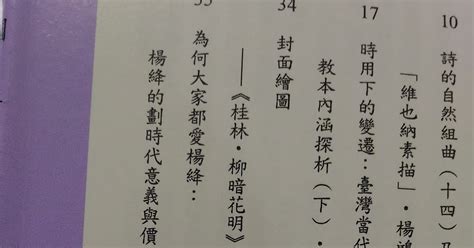 10 詩的自然組曲（十四）
「維也納素描」・楊鴻
17 時用下的變遷：臺灣當代
教本內涵探析（下）・
34 封面繪圖
——《桂林・柳暗花明》
為何大家都愛楊絳：
楊絳的劃時代意義與價